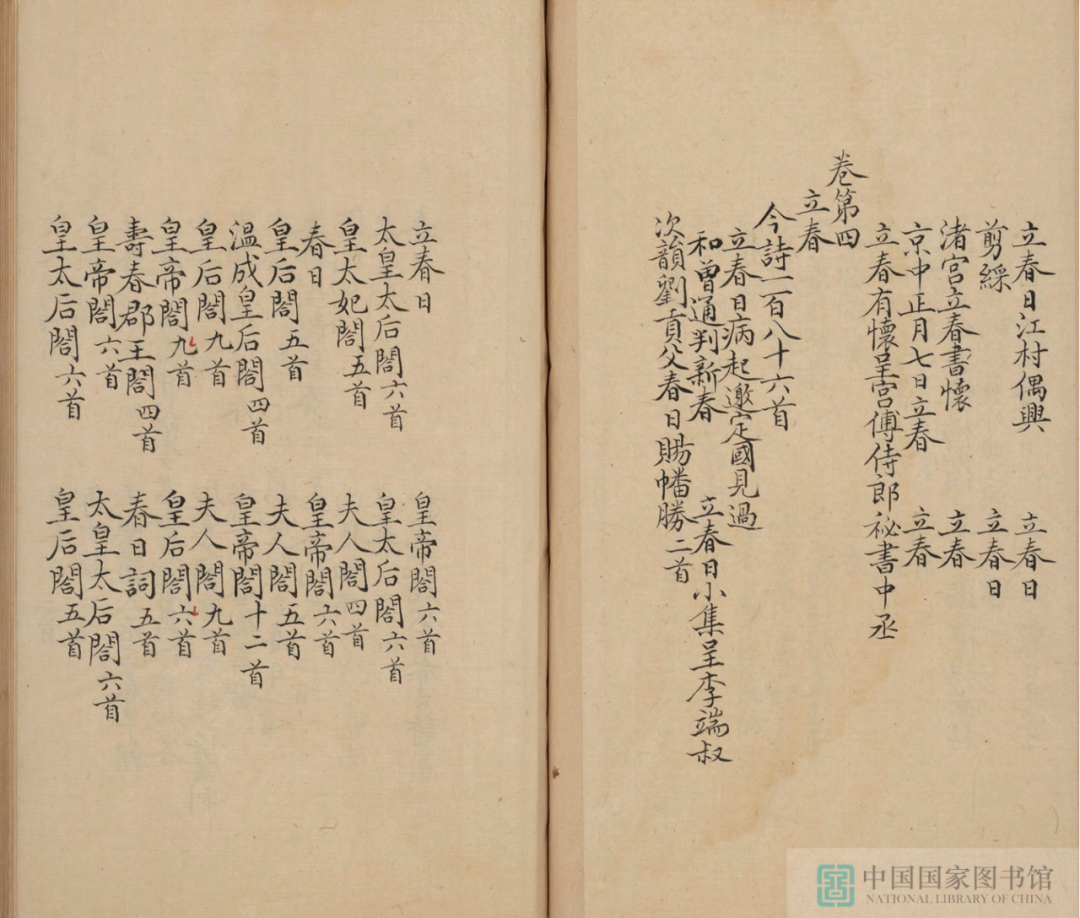 立春日江村偶興　立春日
剪綵　立春日
渚宮立春書懷　立春
京中正月七日立春　立春
立春有懷呈宮傅侍郎秘書中丞
卷第四
立春
今詩一百八十六首
立春日病起邀定國見過
和曾通判新春　立春日小集呈李端叔
次韻劉貢父春日賜幡勝二首
立春日　皇帝閤六首
太皇太后閤六首　皇太后閤六首
皇太妃閤五首　夫人閤四首
春日　皇帝閤六首
皇后閤五首　夫人閤五首
温成皇后閤四首　皇帝閤十二首
皇后閤九首　夫人閤九首
皇帝閤九首　皇后閤六首
壽春郡王閤四首　春日詞五首
皇帝閤六首　太皇太后閤六首
皇太后閤六首　皇后閤五首
中国国家图书馆
NATIONAL LIBRARY OF CHINA